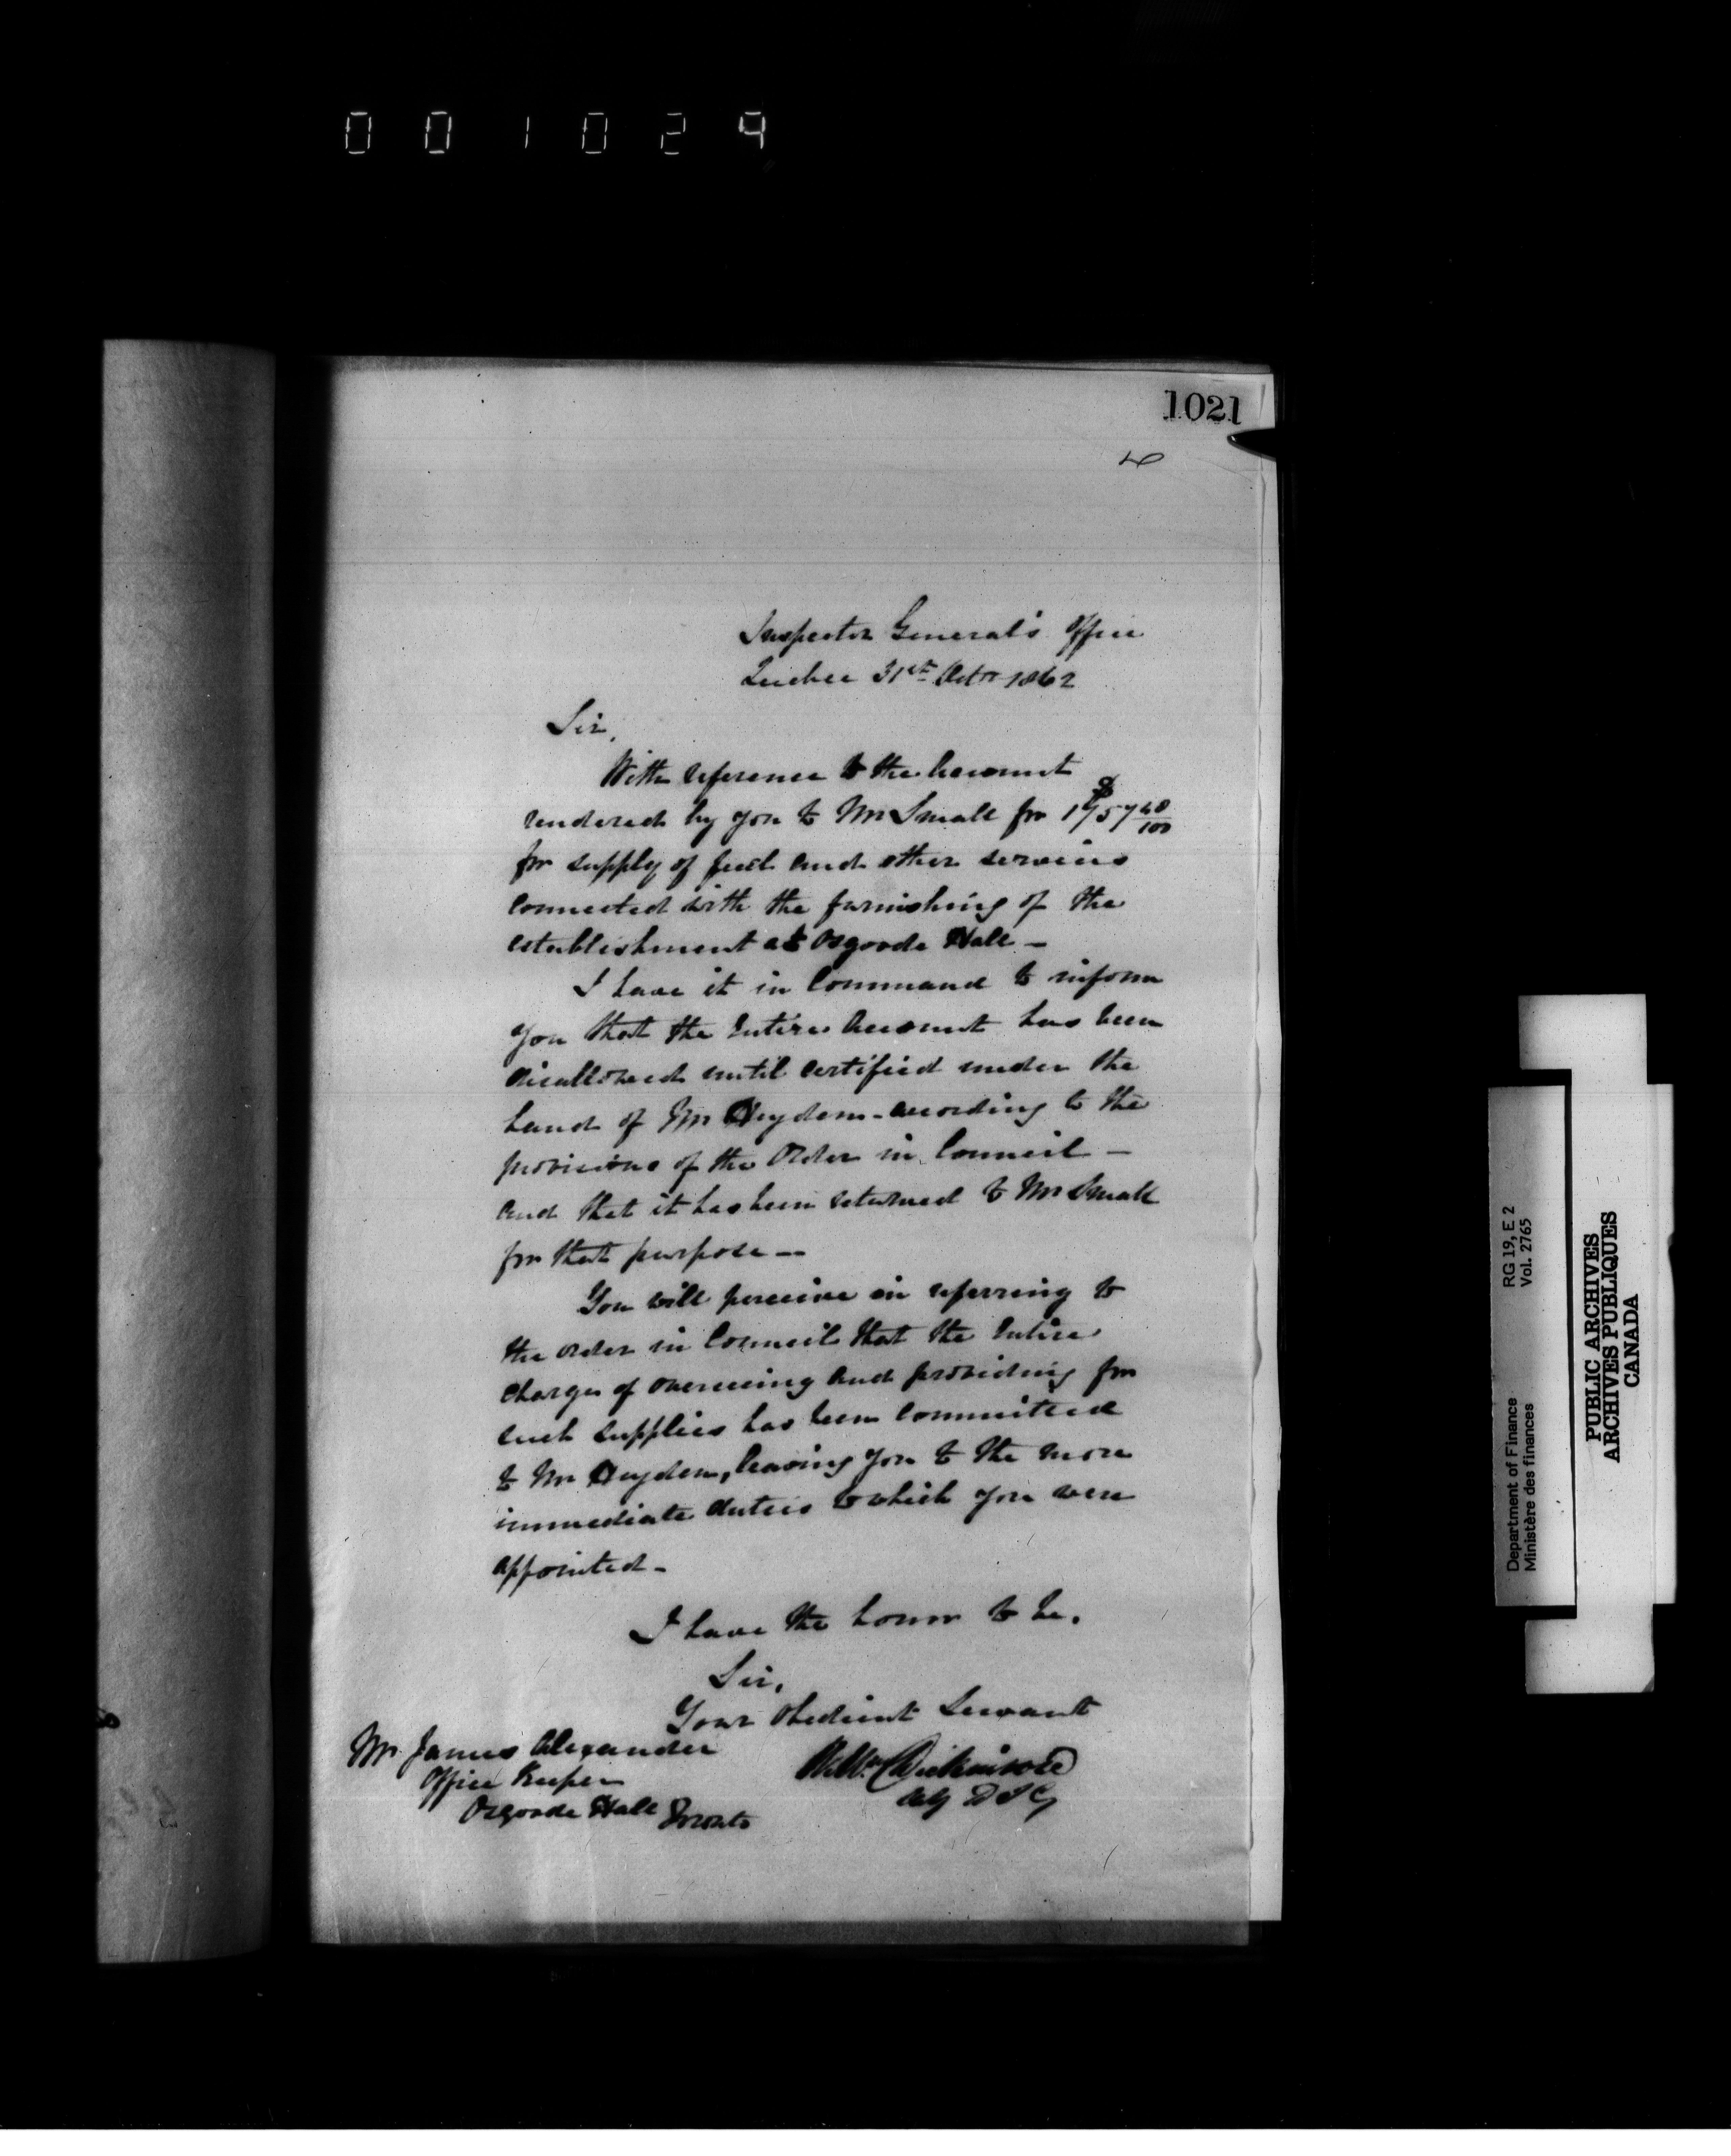 001024
1021
Inspector General's Office
Quebec 31st Octr 1862
Sir,
With reference to the Account
rendered by you to Mr Small for $1757 40/100
for supply of fuel and other services
connected with the furnishing of the
establishment at Osgoode Hall —
I have it in Command to inform
you that the Entire Account has been
disallowed until certified under the
hand of Mr Heyden - according to the
provisions of the Order in Council —
and that it has been returned to Mr Small
for that purpose —
You will perceive on referring to
the order in Council that the Entire
charge of overseeing and providing for
such supplies has been Committed
to Mr Heyden, leaving you to the more
immediate duties to which you were
appointed -
I have the honor to be,
Sir,
Your Obedient Servant
Dickinson
Actg D I G
Mr James Alexander
Office Keeper
Osgoode Hall Toronto
Department of Finance RG 19, E 2
Ministère des finances Vol. 2765
PUBLIC ARCHIVES
ARCHIVES PUBLIQUES
CANADA